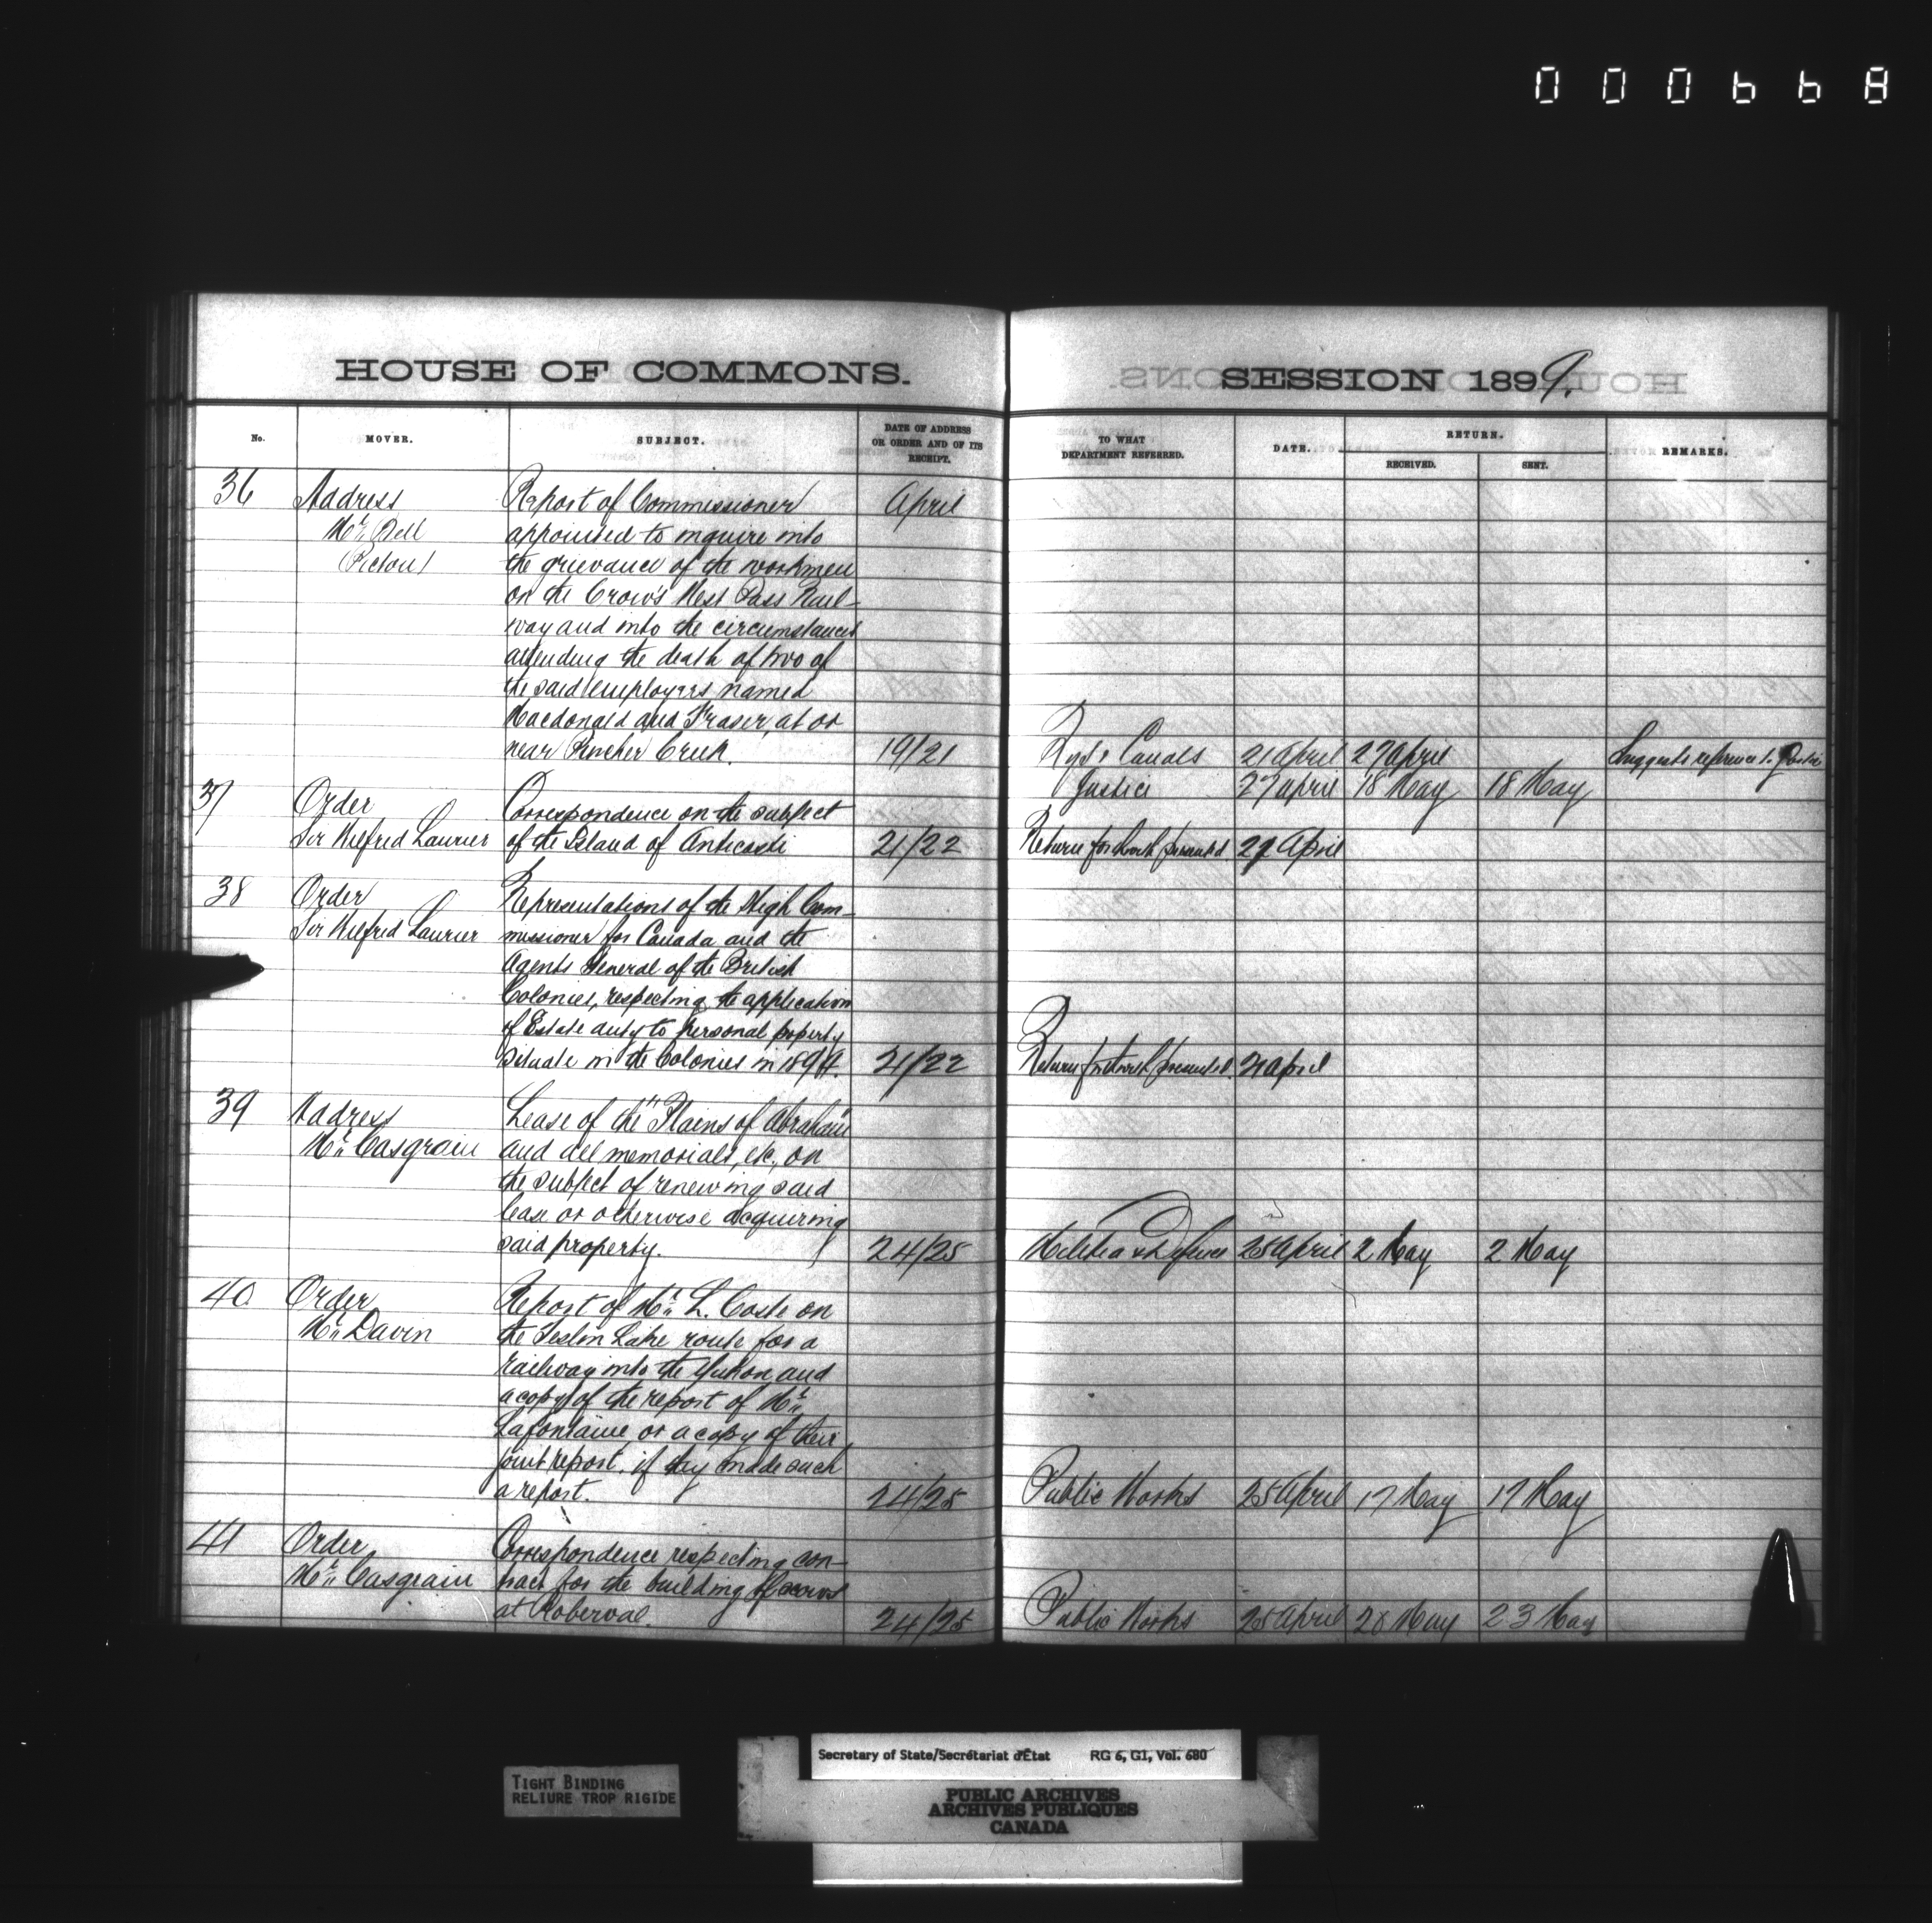 000668
HOUSE OF COMMONS.
No.
MOVER.
SUBJECT.
DATE OF ADDRESS
OR ORDER AND OF ITS
RECEIPT.
36 Address Report of Commissioner April
Mr. Bell appointed to inquire into
(Pictou) the grievance of the workmen
on the Crow's Nest Pass Rail-
way and into the circumstances
attending the death of two of
the said employees named
Macdonald and Fraser, at or
near Pincher Creek. 19/21
37 Order Correspondence on the subject
Sir Wilfred Laurier of the Island of Anticosti 21/22
38 Order Representations of the High Com-
Sir Wilfred Laurier missioner for Canada and the
Agents General of the British
Colonies, respecting the application
of Estate duty to personal property
situate in the Colonies in 1894. 21/22
39 Address Lease of the "Plains of Abraham"
Mr. Casgrain and all memorials, etc., on
the subject of renewing said
lease or otherwise acquiring
said property. 24/25
40 Order Report of Mr. L. Coste on
Mr. Davin the Teslin Lake route for a
railway into the Yukon and
a copy of the report of Mr.
Lafontaine or a copy of their
joint report, if they made such
a report. 24/25
41 Order Correspondence respecting con-
Mr. Casgrain tract for the building of scows
at Roberval. 24/25
SESSION 1899.
TO WHAT
DEPARTMENT REFERRED.
DATE.
RETURN.
RECEIVED.
SENT.
REMARKS.
Rys & Canals 21 April 27 April Suggests reference to Justice
Justice 27 April 18 May 18 May
Return forthwith presented 21 April
Return forthwith presented. 21 April
Militia & Defence 25 April 2 May 2 May
Public Works 25 April 17 May 17 May
Public Works 25 April 23 May
TIGHT BINDING
RELIURE TROP RIGIDE
Secretary of State/Secrétariat d'État RG 6, G1, Vol. 680
PUBLIC ARCHIVES
ARCHIVES PUBLIQUES
CANADA